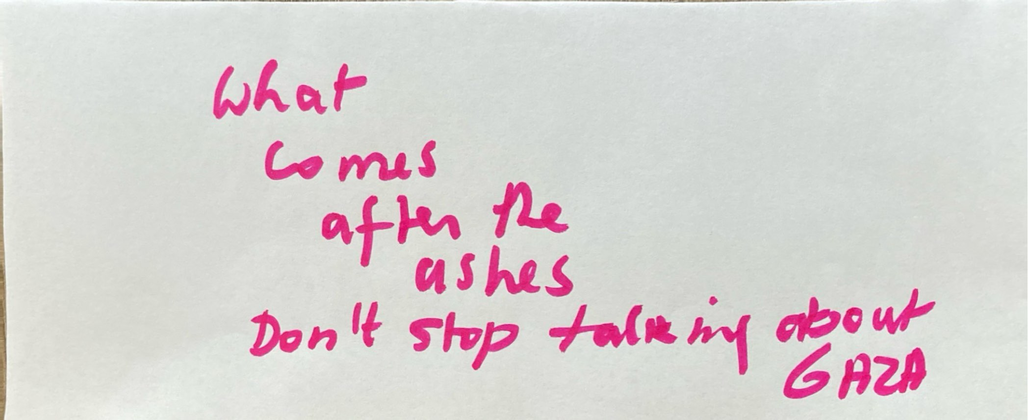 What
comes
after the
ashes
Don't stop talking about
GAZA